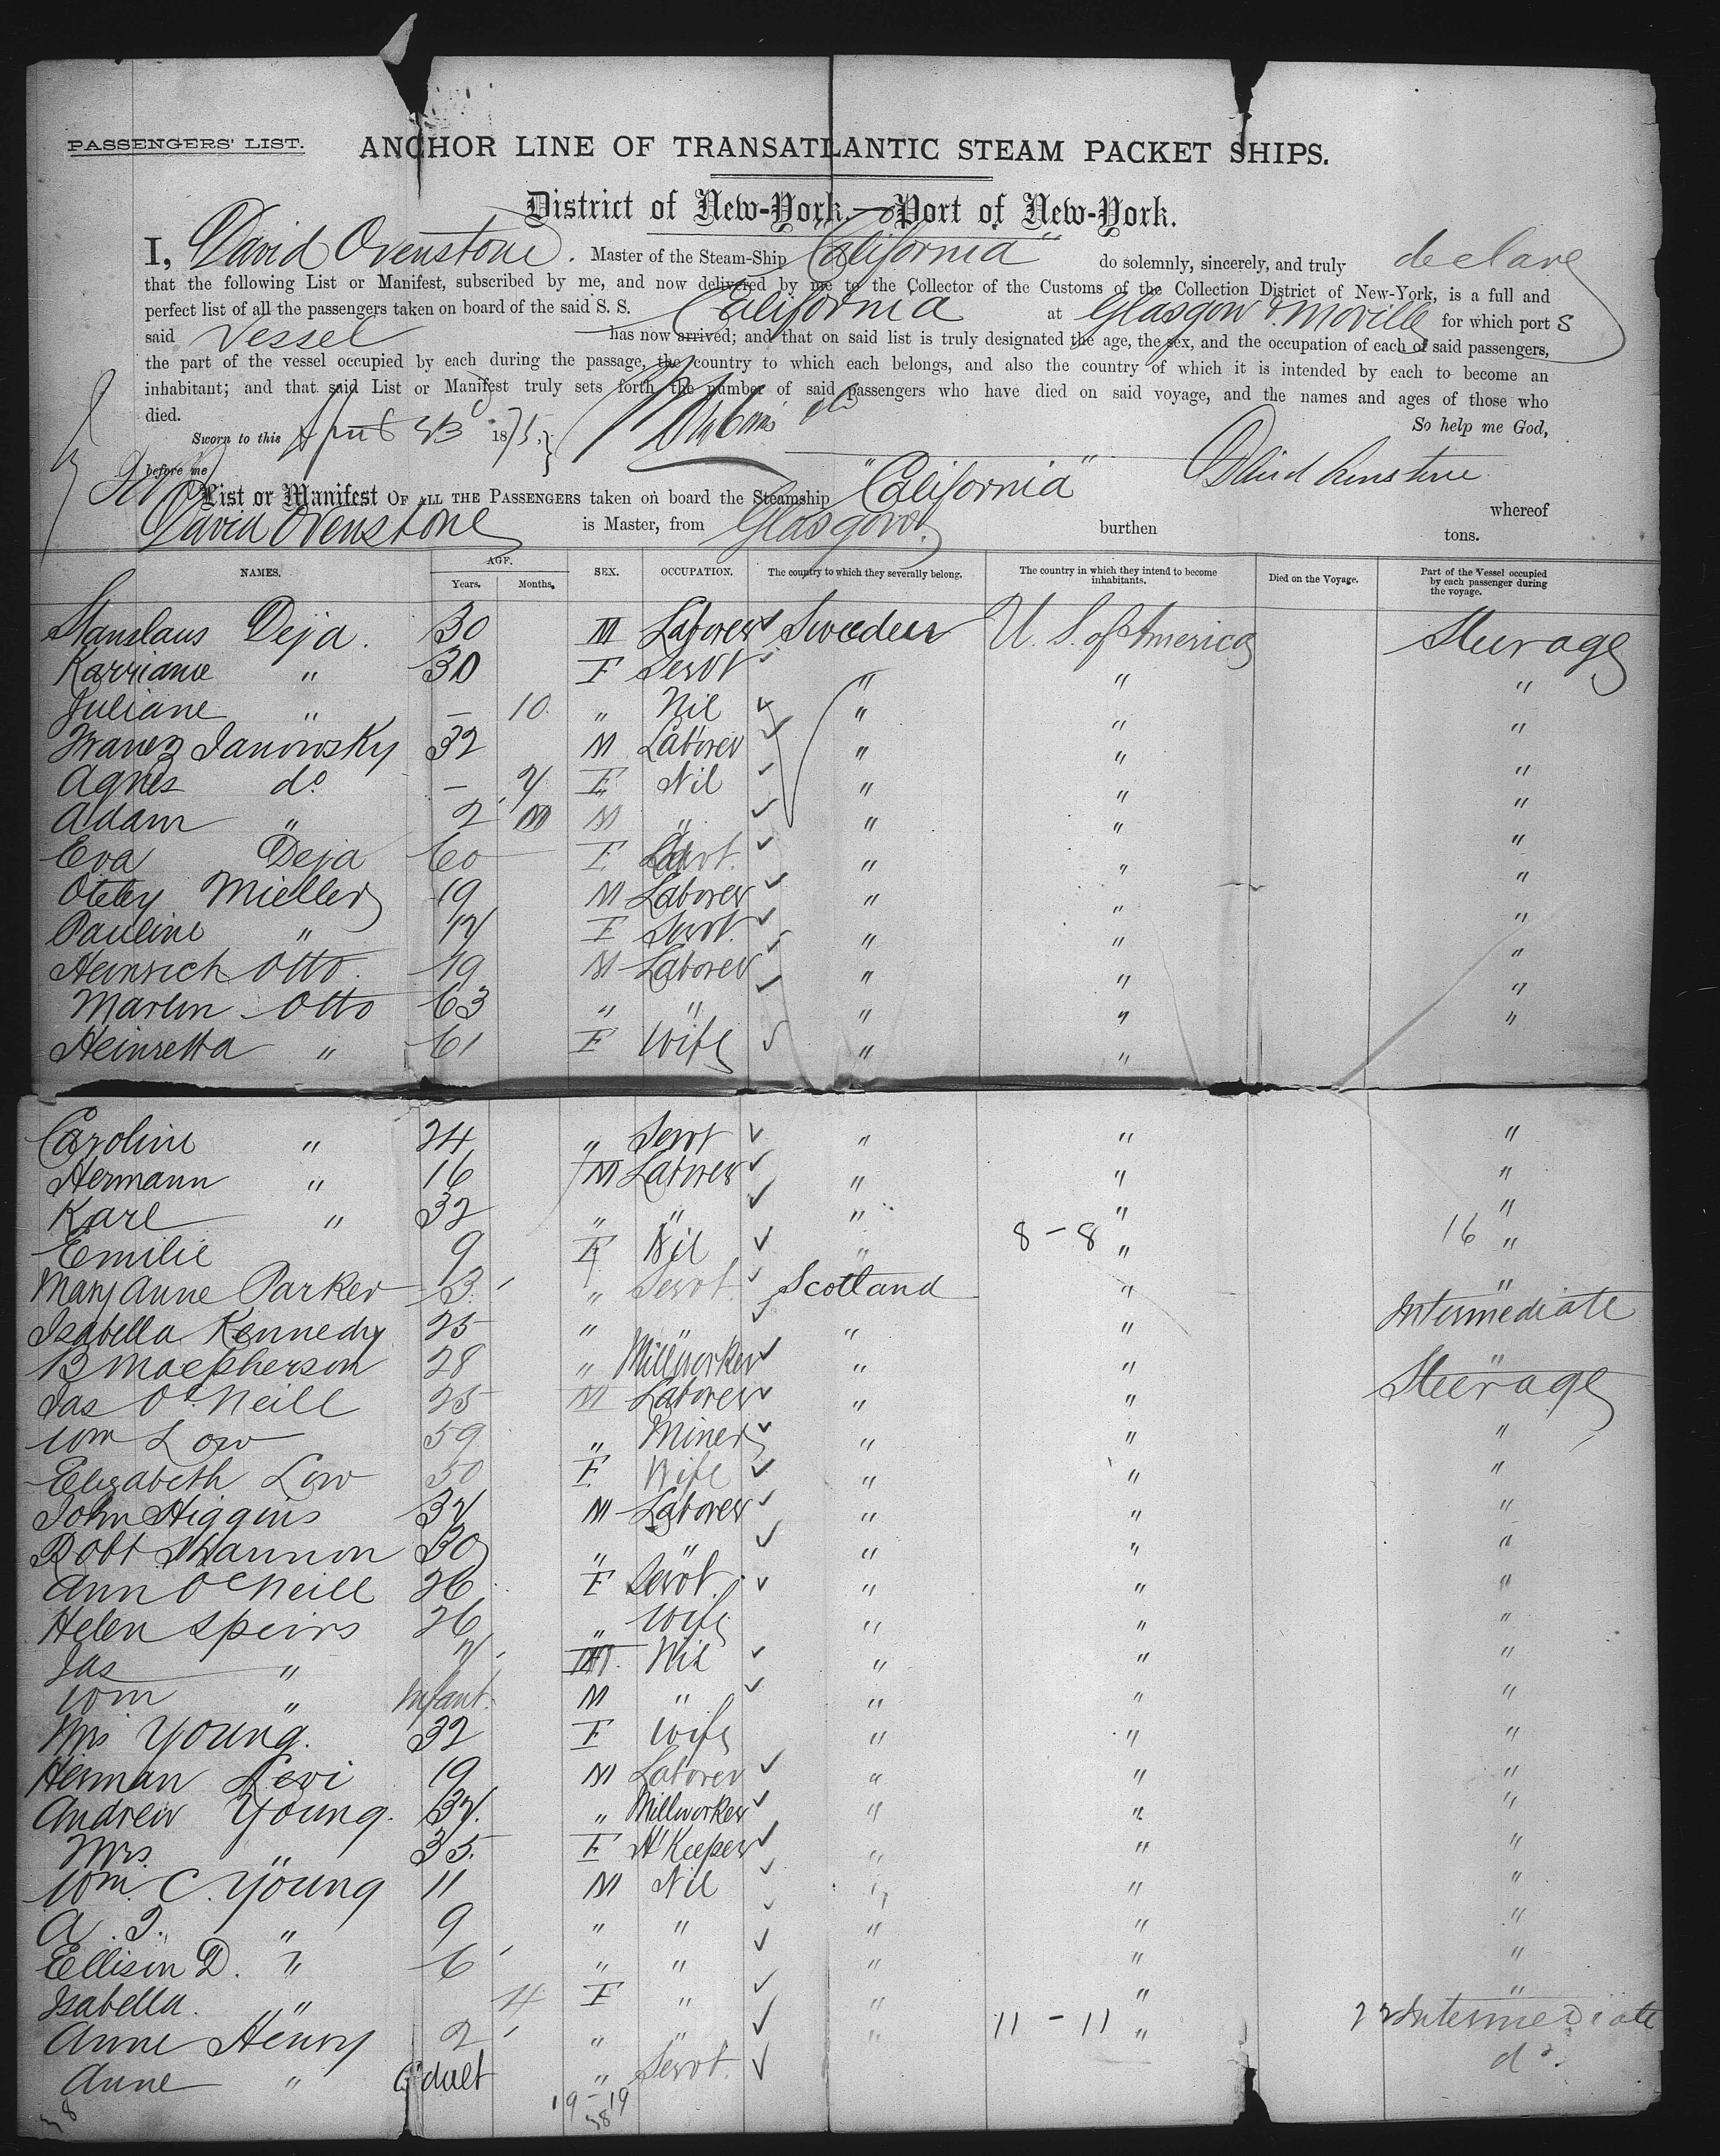 PASSENGERS' LIST.
ANCHOR LINE OF TRANSATLANTIC STEAM PACKET SHIPS.
District of New-York.—Port of New-York.
I, David Ovenstone. Master of the Steam-Ship California" do solemnly, sincerely, and truly declare
that the following List or Manifest, subscribed by me, and now delivered by me to the Collector of the Customs of the Collection District of New-York, is a full and
perfect list of all the passengers taken on board of the said S. S. California at Glasgow & Moville for which port s
said Vessel has now arrived; and that on said list is truly designated the age, the sex, and the occupation of each of said passengers,
the part of the vessel occupied by each during the passage, the country to which each belongs, and also the country of which it is intended by each to become an
inhabitant; and that said List or Manifest truly sets forth the number of said passengers who have died on said voyage, and the names and ages of those who
died.
So help me God,
Sworn to this April 1875.
before me
List or Manifest OF ALL THE PASSENGERS taken on board the Steamship "California" whereof
David Ovenstone is Master, from Glasgow. burthen tons.
NAMES. AGE. Years. Months. SEX. OCCUPATION. The country to which they severally belong. The country in which they intend to become inhabitants. Died on the Voyage. Part of the Vessel occupied by each passenger during the voyage.
Stanslaus Deja. 30 M Laborer Sweden U. S. of America Steerage
Karriane " 30 F Servt " " "
Juliane " — 10 " Nil " " "
Janowsky 32 M Laborer " " "
Agnes do — F Nil " " "
Adam " 2 M M " " " "
Eva Deja 60 F Servt. " " "
Mieller 19 M Laborer " " "
Pauline " 17 F Servt. " " "
Heinrich Otto. 19 M Laborer " " "
Martin Otto 63 " " " " "
Heinretta " 61 F Wife " " "
Caroline " 24 " Servt " " "
Hermann " 16 M Laborer " " "
Karl " 32 " " " " "
Emilie 9 F Nil " 8-8 " 16 "
Mary Anne Parker 13 " Servt. Scotland " "
Isabella Kennedy 25 " " " " Intermediate
B Macpherson 28 " Millworker " " "
Jas O'Neill 25 M Laborer " " Steerage
Wm Low 59 " Miner " " "
Elizabeth Low 50 F Wife " " "
John Higgins 34 M Laborer " " "
Robt Shannon 30 " " " " "
Ann O'Neill 26 F Servt. " " "
Helen Speirs 26 " Wife " " "
Jas " M Nil " " "
Wm " Infant. M " " " "
Mrs Young. 32 F Wife " " "
Herman Levi 19 M Laborer " " "
Andrew Young. 34. " Millworker " " "
Mrs. " 35. F H'Keeper " " "
Wm. C. Young 11 M Nil " " "
A. " 9 " " " " "
Ellison D. " 6 " " " " "
Isabella. " 4 F " " " "
Anne Henry 2 " " " 11-11 " 22 Intermediate
Anne " Adult " Servt. do.
19-19
38
38